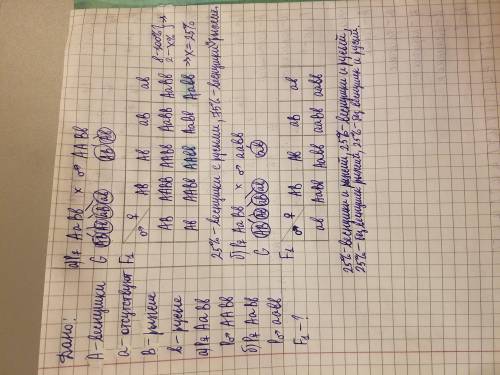 Дано:
А - веснушки
а - отсутствуют
В - рыжые
в - русые
а) P♀ АаВв
P♂ ААВв
б) P♀ АаВв
P♂ аавв
F₁ - ?
а) P♀ АаВв × ♂ ААВв
G АВ Ав аВ ав АВ Ав
F₁
♂ ♀ АВ Ав аВ ав
АВ ААВВ ААВв АаВВ АаВв
Ав ААВв ААвв АаВв Аавв
8 - 100%
2 - х%
=> х = 25%
25% - веснушки с русыми, 75% - веснушки с рыжыми.
б) P♀ АаВв × ♂ аавв
G АВ Ав аВ ав ав
F₁
♂ ♀ АВ Ав аВ ав
ав АаВв Аавв ааВв аавв
25% - веснушки и рыжий, 25% - веснушки и русый,
25% - без веснушек рыжий, 25% - без веснушек и русый.